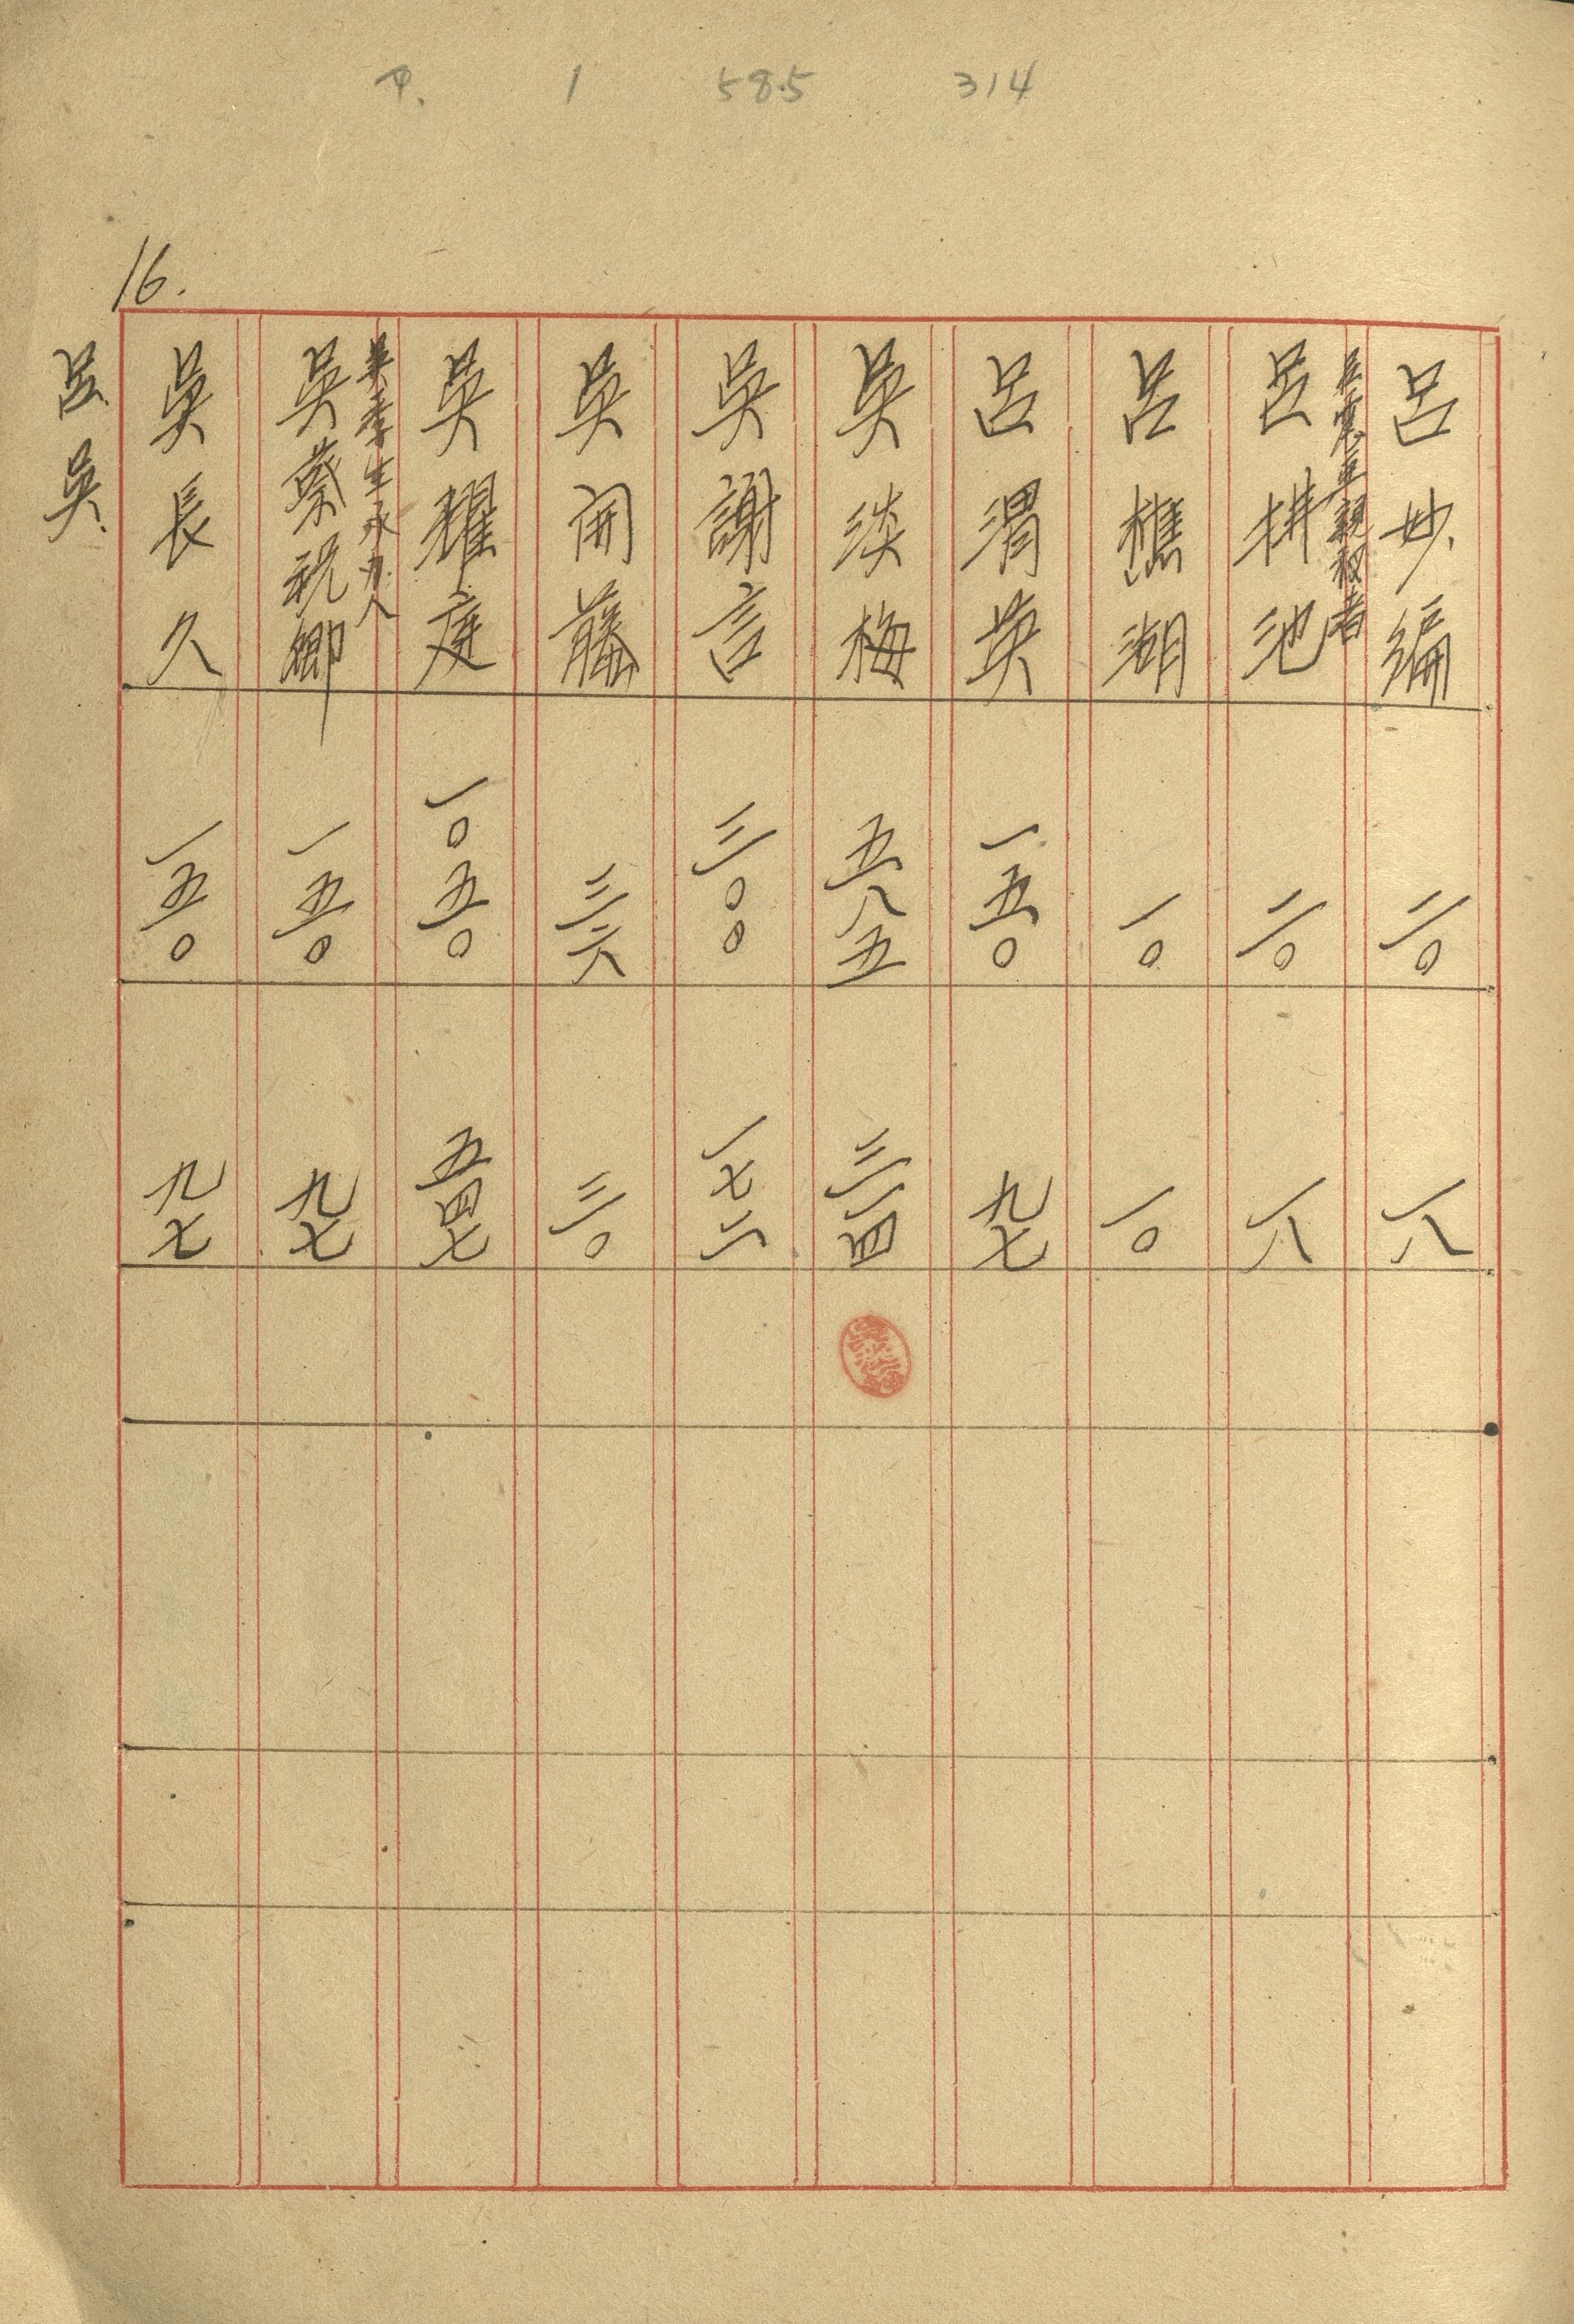 P. 1 585 314
16.
呂妙編 二〇 一八
親权者
呂拼池 二〇 一八
呂樵湖 一〇 一〇
呂渭英 一五〇 九七
吳淡梅 五八五 三一四
吳謝言 三〇〇 一七二
吳開藤 三六 三〇
吳耀庭 一〇五〇 五四七
吳季生承办人
吳蔡祝卿 一五〇 九七
吳長久 一五〇 九七
呂. 吳.